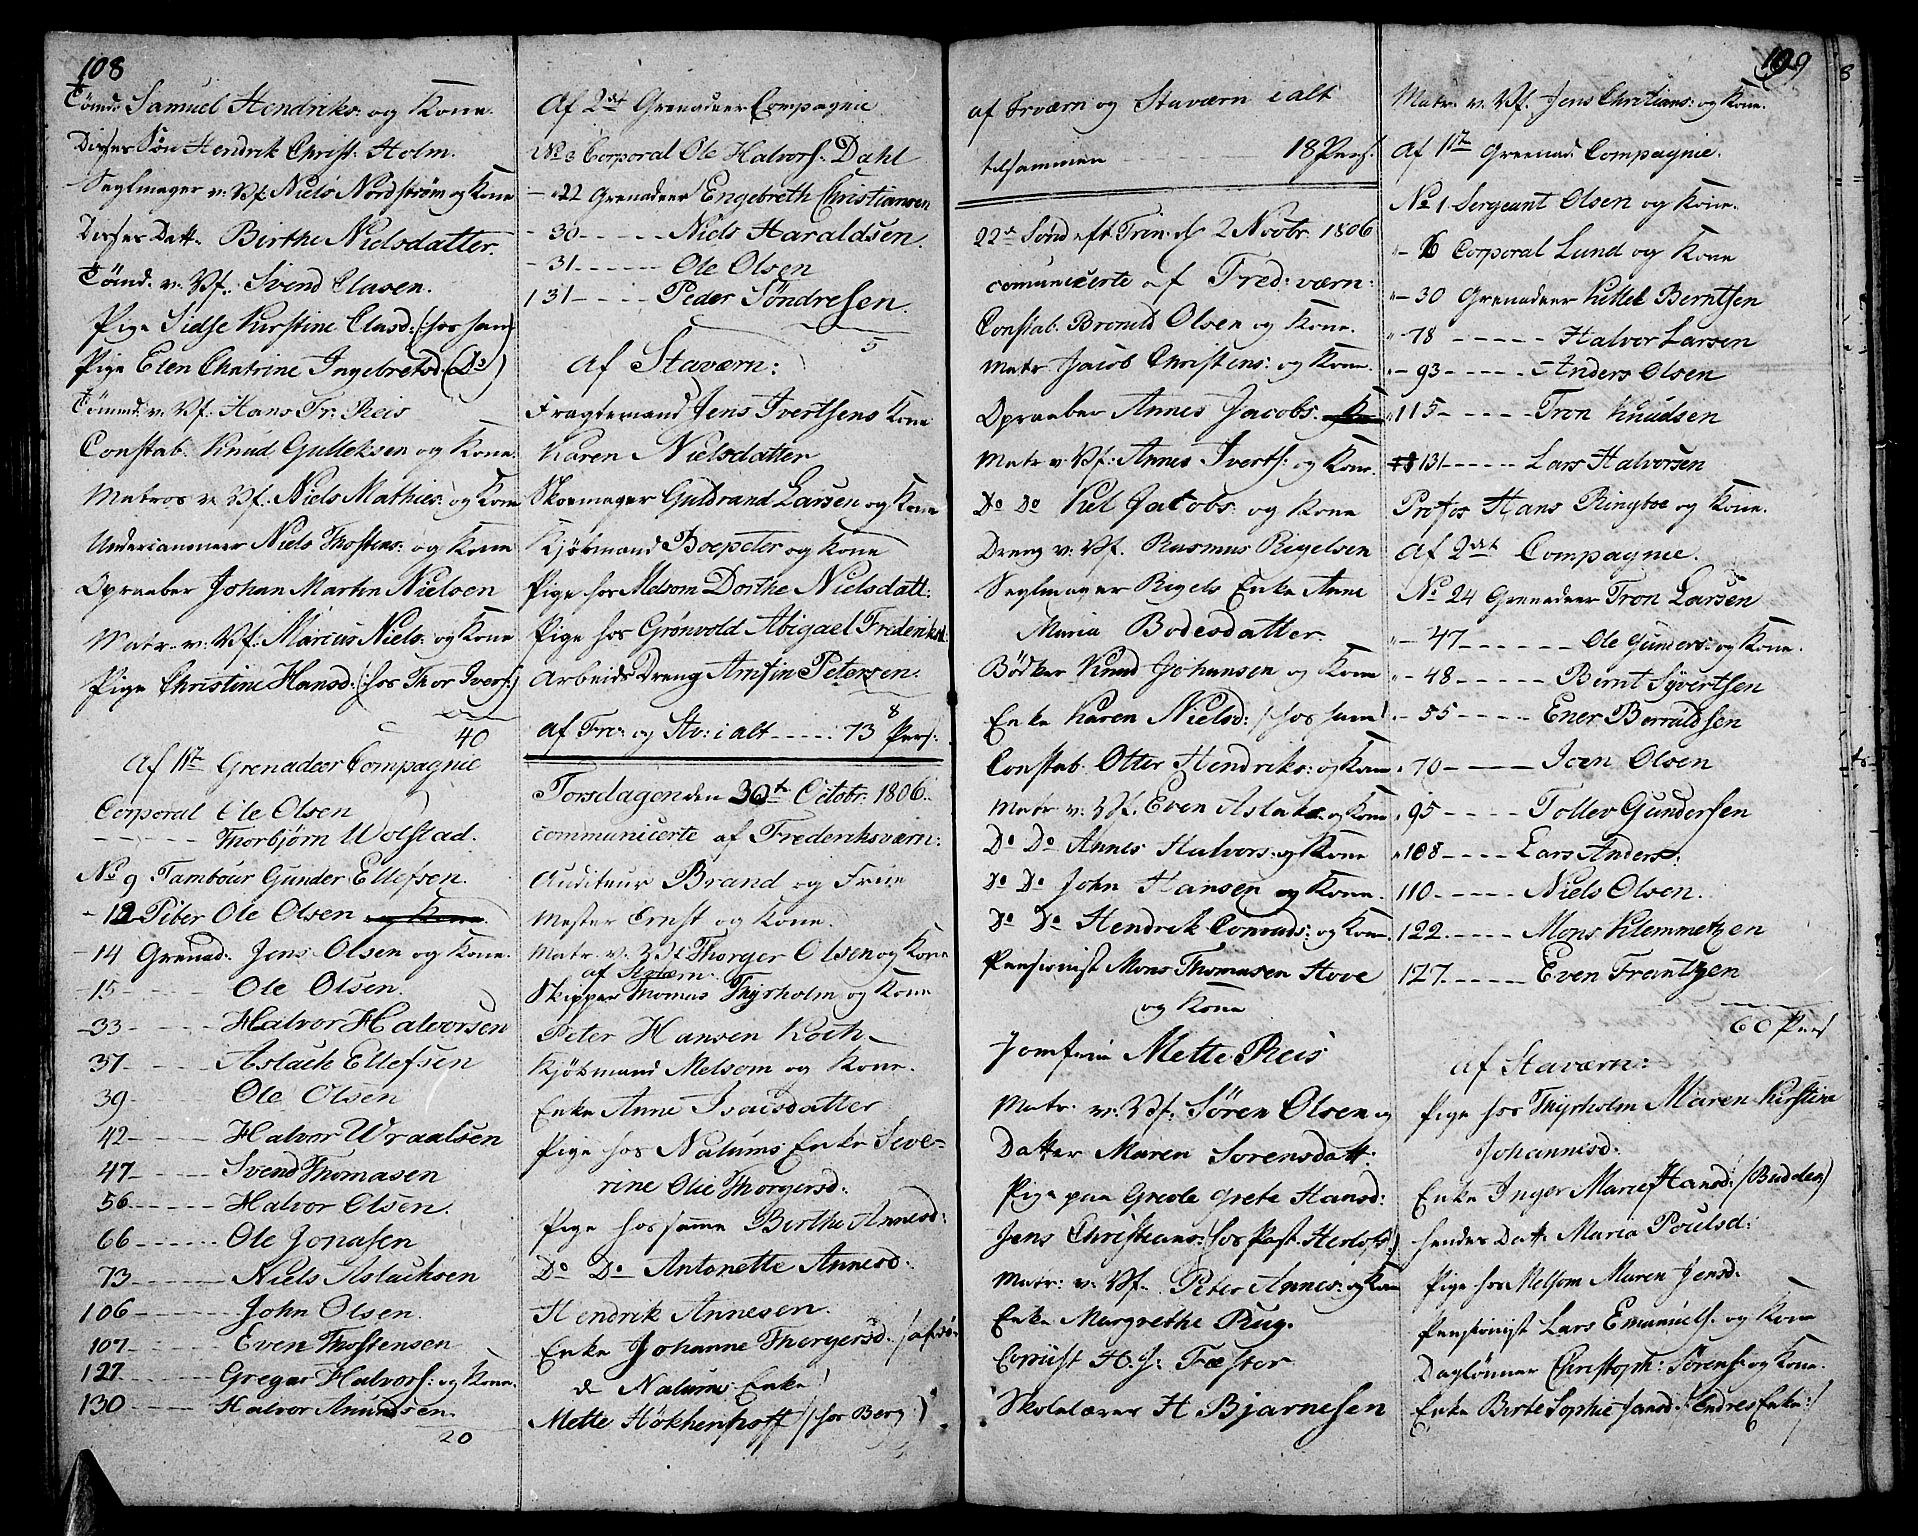 108
Tömd: Samuel Hendriks: og Kone.
Disses Sön Hendrik Christ: Holm.
Seglmager v: Vf. Niels Nordström og Kone
Disses Datt. Birthe Nielsdatter.
Tömd. v: Vf: Svend Clasen.
Pige Sidse Kirstine Clasd: (hos ham)
Pige Elen Chatrine Ingebretsd. (Do)
Tömmd. v: Vf. Hans Fr: Reis
Constab. Knud Gulleksen og Kone.
Matros v. Vf. Niels Mathies: og Kone
Undercanoneer Niels Thostens: og Kone
Opraaber Johan Martin Nielsen
Matr. v: Vf: Marcus Niels. og Kone
Pige Christine Hansd: (hos Thor Ivers:)
40
Af 1st Grenadeer Compagnie
Corporal Ole Olsen
- - - Thorbjörn Wolstad.
No 9 Tambour Gunder Ellefsen.
- 12 Piber Ole Olsen og Kone.
- 14 Grenad: Jens Olsen og Kone.
- 15 - - - Ole Olsen.
- 33 - - - Halvor Halvorsen
37 - - - Aslach Ellefsen
39 - - - Ole Olsen
42 - - - Halvor Wraalsen
47 - - - Svend Thomasen
56 - - - Halvor Olsen.
66 - - - Ole Jonasen
73 - - - Niels Aslachsen
106 - - - John Olsen.
107 - - - Even Thostensen
127 - - - Gregar Halvors: og Kone.
130 - - - Halvor Amundsen.
20
Af 2det Grenadeer Compagnie
No 3 Corporal Ole Halvors: Dahl
- 22 Grenadeer Engebreth Christiansen
- 30 - - - Niels Haraldsen.
- 31 - - - Ole Olsen
131 - - - Peder Söndresen.
5
Af Staværn:
Fragtemand Jens Ivertsens Kone
Karen Nielsdatter
Skoemager Guldrand Larsen og Kone
Kjöbmand Boepeter og Kone
Pige hos Melsom Dorthe Nielsdatt:
Pige hos Grönvold Abigael Frederiksd:
Arbeids Dreng Arnfin Petersen.
8
Af Fr: og St: i alt - - - 73 Pers:
Torsdagen den 30te Octobr: 1806.
communicerte af Frederiksværn:
Auditeur Brand og Frue
Mester Ernst og Kone.
Matr. v: Vf Thorger Olsen og Kone
af Staværn.
Skipper Thomas Thyrholm og Kone
Peter Hansen Koch
Kjöbmand Melsom og Kone.
Enke Anne Isacsdatter
Pige hos Nalums Enke Seve-
rine Olie Thorgersd:
Pige hos samme Birthe Annesd:
Do Do Antonette Annesd:
Hendrik Annesen.
Enke Johanne Thorgersd.
Nalums Enke)
Mette Hökkenhoff (hos Berg)
109
af Frværn og Staværn i alt
tilsammen - - - 18 Pers.
22de Sönd eft Trin: d 2 Novbr. 1806
comunicerte af Fred: værn:
Constab. Bronild Olsen og Kone.
Matr Jacob Christens: og Kone.
Opraaber Annes Jacobs.
Matr v: Vf: Annes Iverts: og Kone.
Do Do Kiel Jacobs og Kone
Dreng v: Vf. Rasmus Rigelsen
Seglmager Rigels Enke Anne
Maria Bodesdatter.
Bödker Knud Johansen og Kone
Enke Karen Nielsd: (hos ham)
Constab. Otter Hendriks: og Kone
Matr v: Vf. Even Aslaks. og Kone
Do Do Annes Halvors: og Kone
Do Do John Hansen og Kone.
Do Do Hendrik Conrads: og Kone
Pensionist Mons Thomasen Hove
og Kone
Jomfrue Mette Reis
Matr. v: Vf. Sören Olsen og
Datter Maren Sorensdatt:
Pige paa Greole Grete Hansd:
Jens Christians: (hos Past. Herlofs.)
Matr: v: Vf. Peter Annes: og Kone
Enke Margrethe Rug.
Copiist H. J: Fæster
Skolelærer H Bjarnesen
Matr: v: Vf. Jens Christians: og Kone.
Af 1ste Greenad: Compagnie.
No 1 Sergeant Olsen og Kone.
- 6 Corporal Lund og Kone
- 30 Grenadeer Killek Berntsen
- 78 - - - Halvor Larsen
- 93 - - - Anders Olsen
115 - - - Tron Knudsen
131 - - - Lars Halvorsen
Profos Hans Ringboe og Kone.
Af 2det Compagnie.
No 24 Grenadeer Tron Larsen
- 47 - - - Ole Gunders: og Kone.
- 48 - - - Bernt Syvertsen
- 55 - - - Ener Berruldsen
70 - - - Iven Olsen
95 - - - Tollev Gundersen
108 - - - Lars Anders:
110 - - - Niels Olsen.
122 - - - Mons Klemmetzen
127 - - - Even Frantzen
60 Pers
Af Staværn:
Pige hos Thyrholm Maren Kirstine
Johannesd:
Enke Inger Marie Hansd: (Buddes)
hendes Datt Maria Poulsd:
Pige hos Melsom Maren Jensd.
Pensionist Lars Emanuels. og Kone
Daglönner Christoph: Sörens: og Kone.
Enke Birte Sophie Jansd. (Endres Enke:)
8